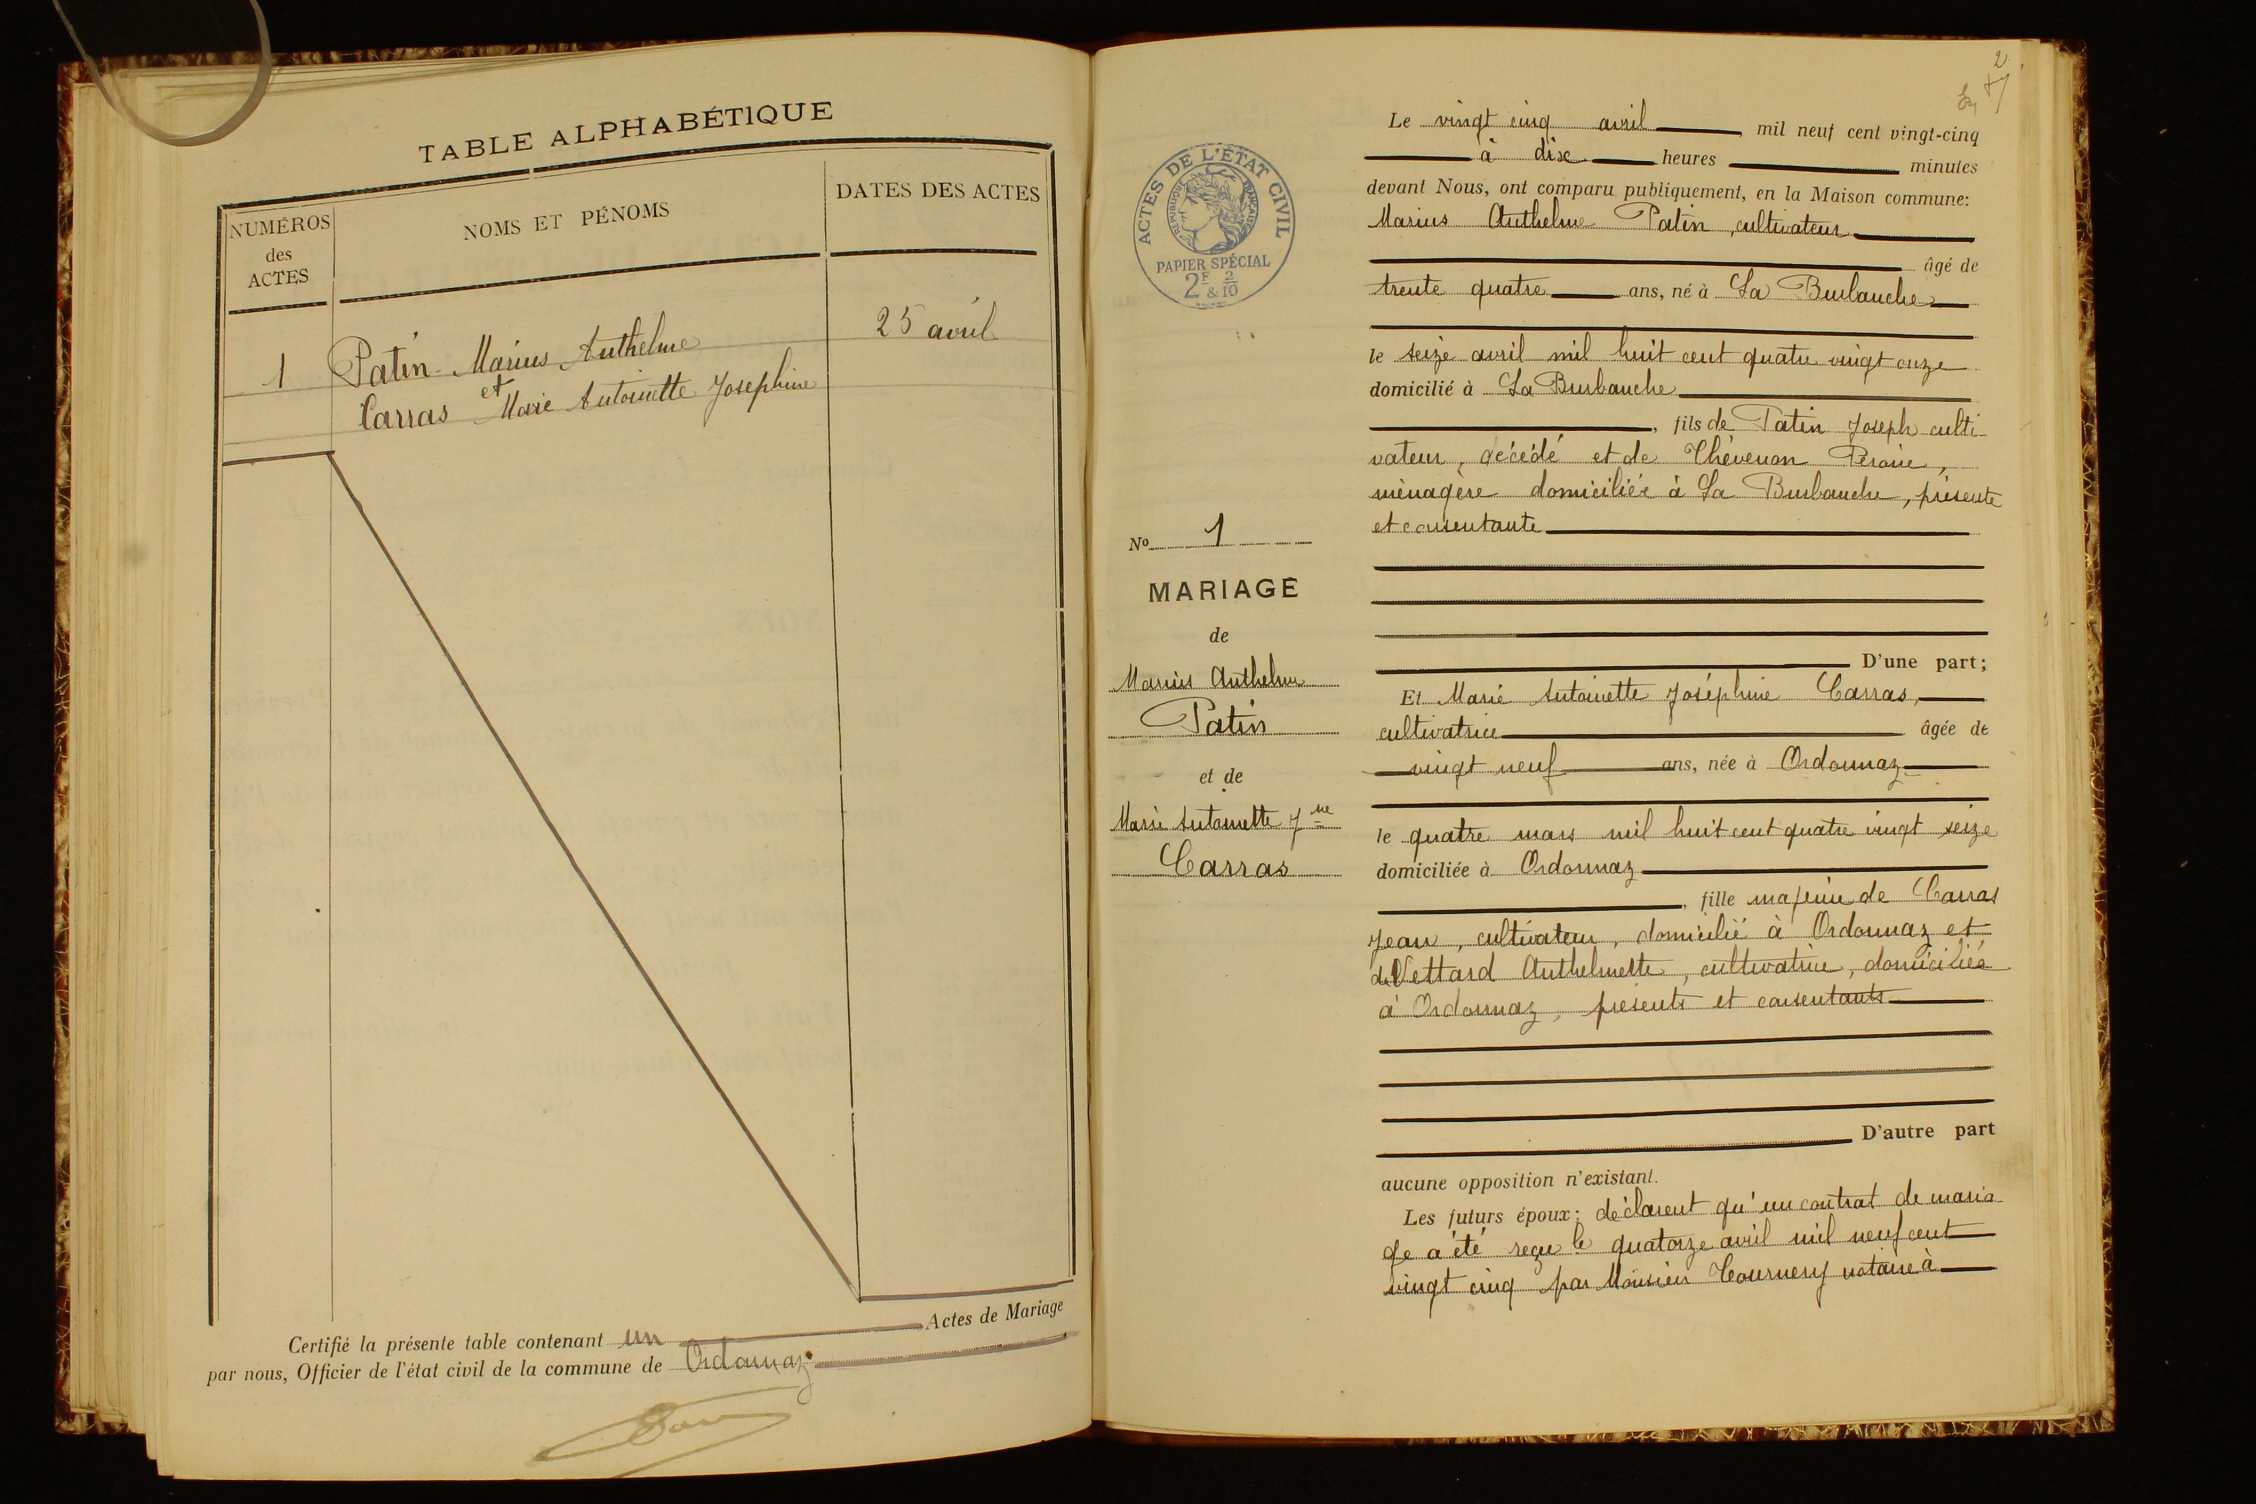 TABLE ALPHABÉTIQUE
NUMÉROS
des
ACTES
NOMS ET PÉNOMS
DATES DES ACTES
1
Patin Marius Anthelme
25 avril
et
Carras Marie Antoinette Josephine
Certifié la présente table contenant un Actes de Mariage
par nous, Officier de l'état civil de la commune de Ordonnaz
2
ACTES DE L'ÉTAT CIVIL
RÉPUBLIQUE FRANÇAISE
PAPIER SPÉCIAL
2F & 2/10
No 1
MARIAGE
de
Marius Anthelme
Patin
et de
Marie Antoinette Jne
Carras
Le vingt cinq avril mil neuf cent vingt-cinq
à dix heures minutes
devant Nous, ont comparu publiquement, en la Maison commune:
Marius Anthelme Patin, cultivateur
âgé de
trente quatre ans, né à La Burbanche
le seize avril mil huit cent quatre vingt onze
domicilié à La Burbanche
, fils de Patin Joseph culti-
vateur, décédé et de Thévenon Péroine,
ménagère domiciliée à La Burbanche, présente
et consentante
D'une part;
Et Marie Antoinette Joséphine Carras,
cultivatrice âgée de
vingt neuf ans, née à Ordonnaz
le quatre mars mil huit cent quatre vingt seize
domiciliée à Ordonnaz
, fille majeure de Carras
Jean, cultivateur, domicilié à Ordonnaz et
de Vettard Anthelmette, cultivatrice, domiciliée
à Ordonnaz, présents et consentants
D'autre part
aucune opposition n'existant.
Les futurs époux: déclarent qu'un contrat de maria-
ge a été reçu le quatorze avril mil neuf cent
vingt cinq par Monsieur Tournery notaire à